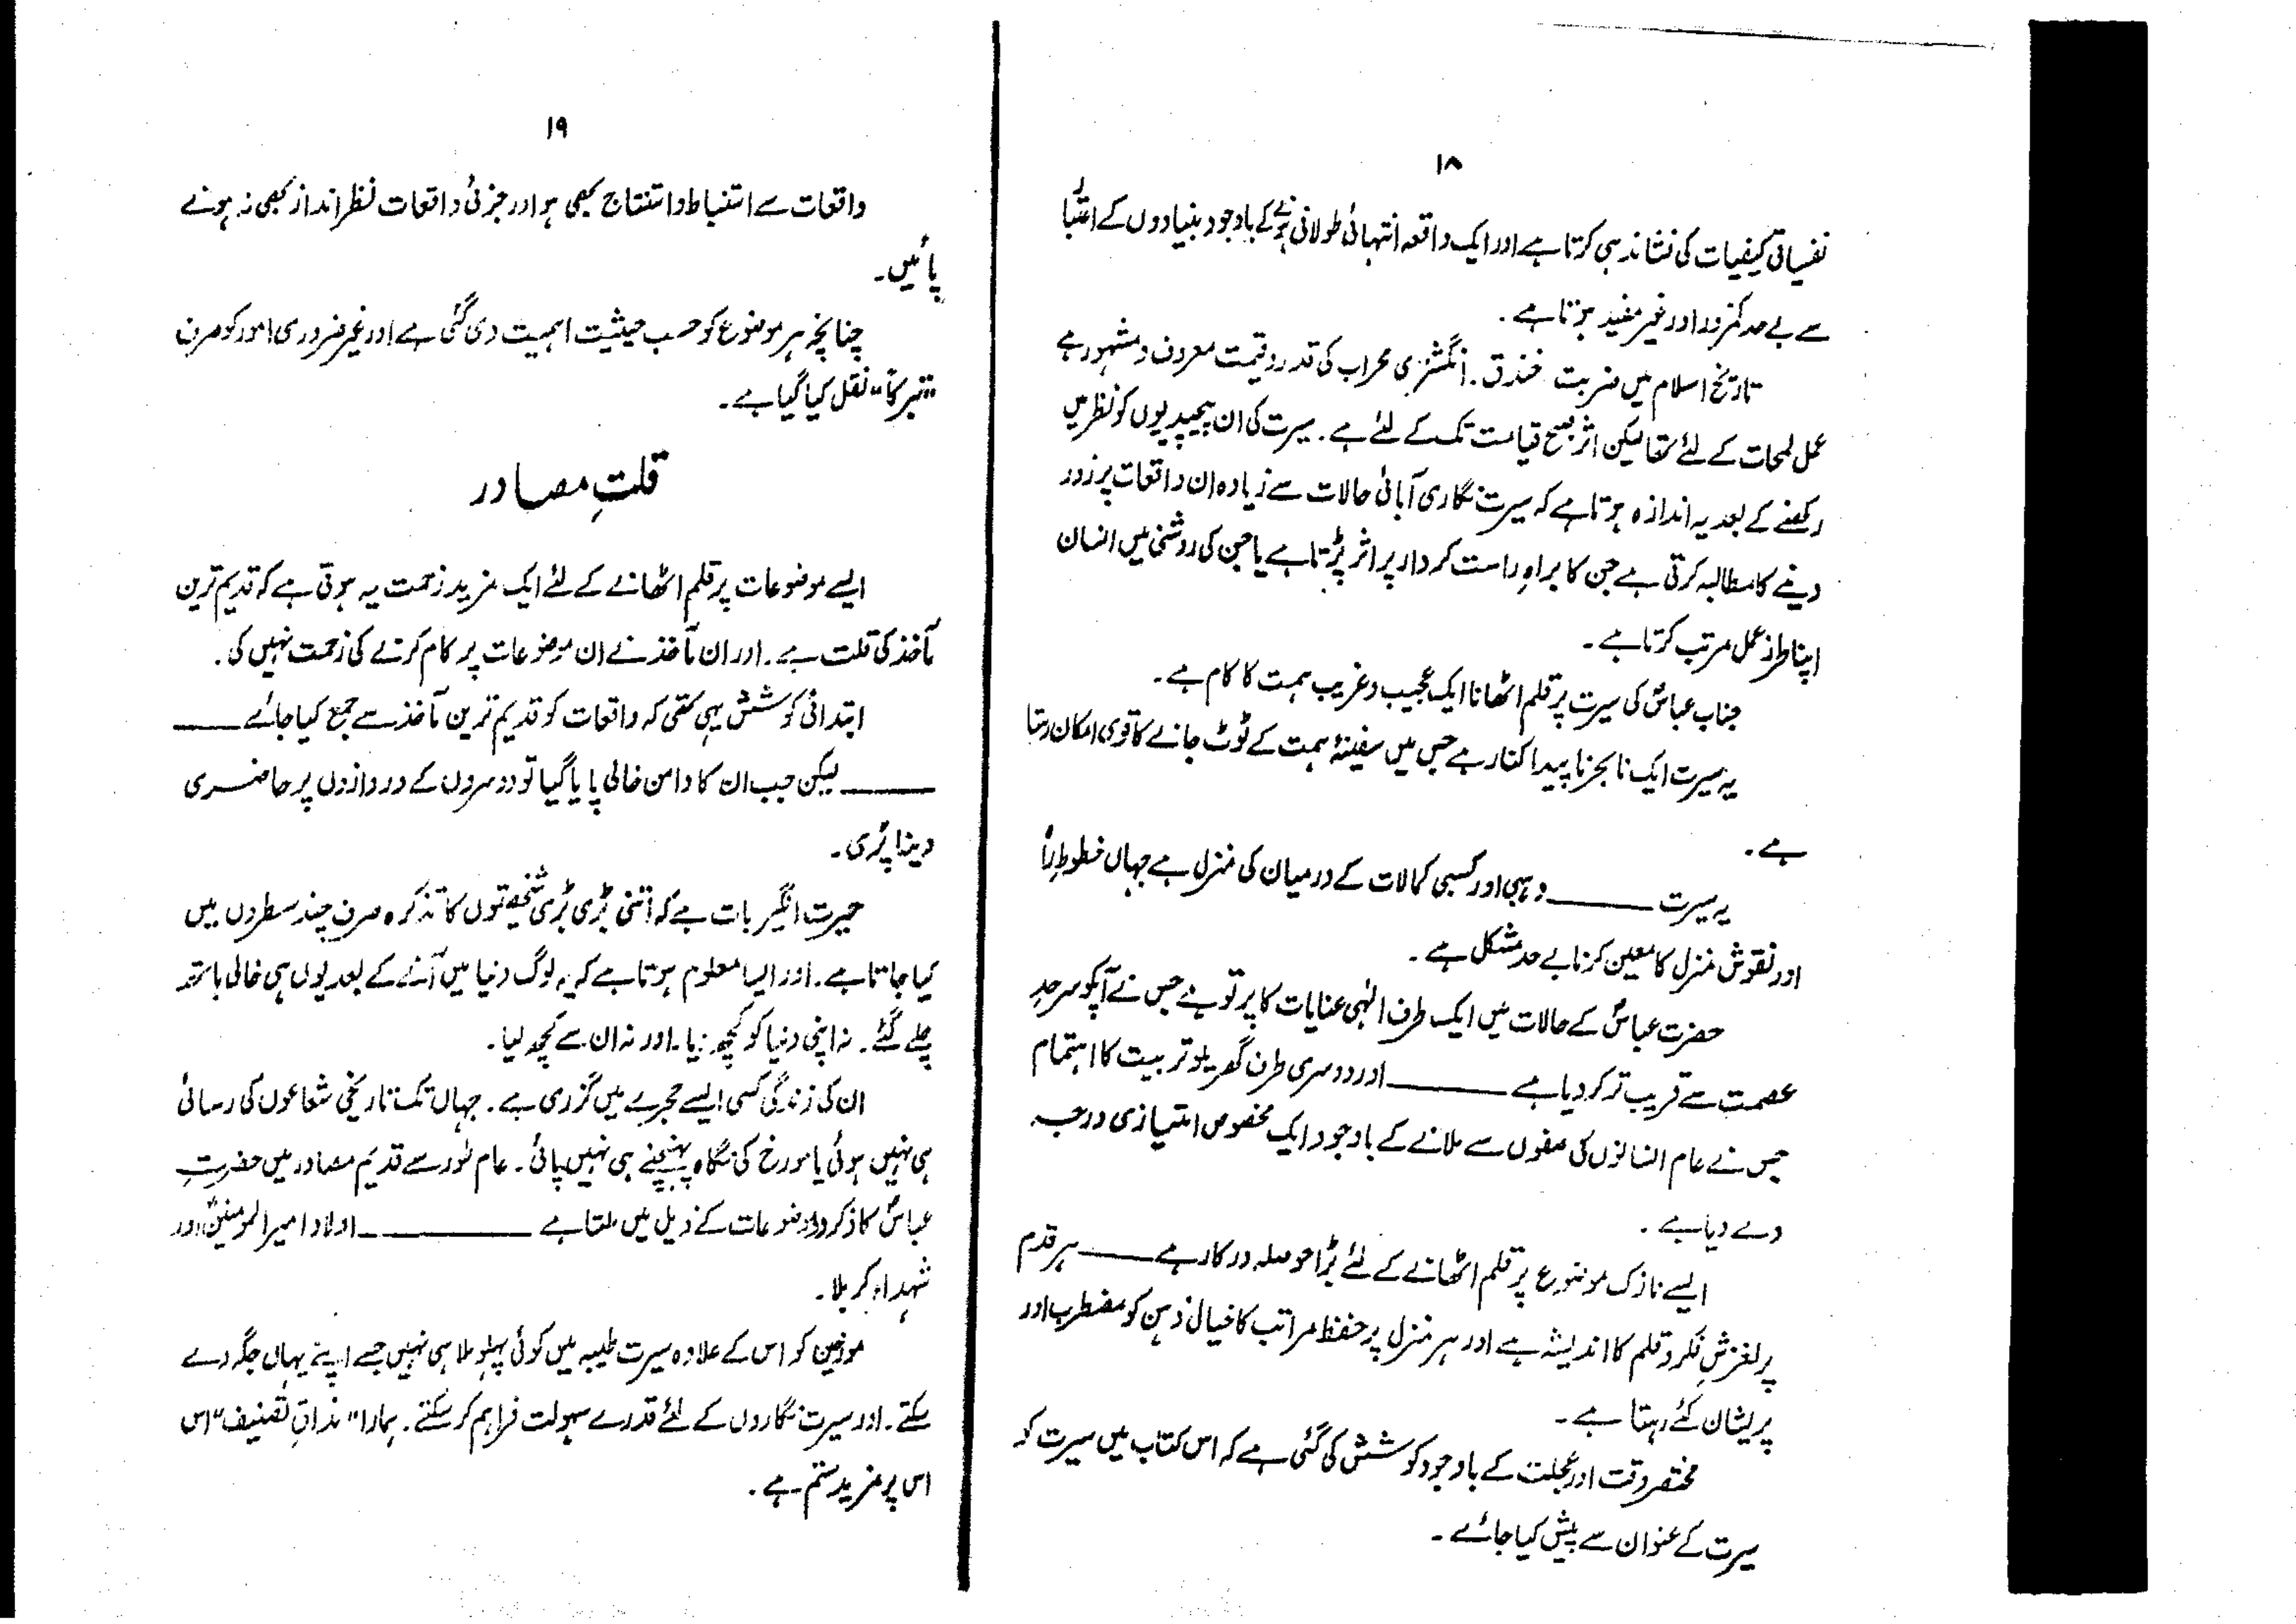 ۱۸
نفسیاتی کیفیات کی نشاندہی کرتا ہے اور ایک واقعہ انتہائی طولانی ہونے کے باوجود بنیادوں کے اعتبار
سے بے حد کمزور اور غیر مفید ہوتا ہے۔
تاریخ اسلام میں ضربت خندق۔ انگشتری محراب کی قدر و قیمت معروف و مشہور ہے
عمل لمحات کے لئے تھا لیکن اثر صبح قیامت تک کے لئے ہے۔ سیرت کی ان پیچیدیوں کو نظر میں
رکھنے کے بعد یہ اندازہ ہوتا ہے کہ سیرت نگاری آبائی حالات سے زیادہ ان واقعات پر زور
دینے کا مطالبہ کرتی ہے جن کا براہِ راست کردار پر اثر پڑتا ہے یا جن کی روشنی میں انسان
اپنا طرز عمل مرتب کرتا ہے۔
جناب عباسؑ کی سیرت پر قلم اٹھانا ایک عجیب و غریب ہمت کا کام ہے۔
یہ سیرت ایک نا بحر ناپیدا کنار ہے جس میں سفینۂ ہمت کے ٹوٹ جانے کا قوی امکان رہتا
ہے۔
یہ سیرت ــــــــ وہبی اور کسبی کمالات کے درمیان کی منزل ہے جہاں خطوطِ راہ
اور نقوش منزل کا معین کرنا بے حد مشکل ہے۔
حضرت عباسؑ کے حالات میں ایک طرف الٰہی عنایات کا پرتو ہے جس نے آپکو سرحدِ
عصمت سے قریب تر کر دیا ہے ــــــــ اور دوسری طرف گھریلو تربیت کا اہتمام
جس نے عام انسانوں کی صفوں سے ملانے کے باوجود ایک مخصوص امتیازی درجہ
دے دیا ہے۔
ایسے نازک موضوع پر قلم اٹھانے کے لئے بڑا حوصلہ درکار ہے ــــــــ ہر قدم
پر لغزشِ فکر و قلم کا اندیشہ ہے اور ہر منزل پر حفظ مراتب کا خیال ذہن کو مضطرب اور
پریشان کئے رہتا ہے۔
مختصر وقت اور عجلت کے باوجود کوشش کی گئی ہے کہ اس کتاب میں سیرت کو
سیرت کے عنوان سے پیش کیا جائے۔
۱۹
واقعات سے استنباط و استنتاج بھی ہو اور جزئی واقعات نظر انداز بھی نہ ہونے
پائیں۔
چنانچہ ہر موضوع کو حسب حیثیت اہمیت دی گئی ہے اور غیر ضروری امور کو صرف
"تبرکاً" نقل کیا گیا ہے۔
قلتِ مصادر
ایسے موضوعات پر قلم اٹھانے کے لئے ایک مزید زحمت یہ ہوتی ہے کہ قدیم ترین
مآخذ کی قلت ہے۔ اور ان مآخذ نے ان موضوعات پر کام کرنے کی زحمت نہیں کی۔
ابتدائی کوشش یہی تھی کہ واقعات کو قدیم ترین مآخذ سے جمع کیا جائے ــــــــ
ــــــــ لیکن جب ان کا دامن خالی پایا گیا تو دوسروں کے دروازوں پر حاضری
دینا پڑی۔
حیرت انگیز بات ہے کہ اتنی بڑی بڑی شخصیتوں کا تذکرہ صرف چند سطروں میں
کیا جاتا ہے۔ اور ایسا معلوم ہوتا ہے کہ یہ لوگ دنیا میں آنے کے بعد یوں ہی خالی ہاتھ
چلے گئے۔ نہ اپنی دنیا کو کچھ دیا۔ اور نہ ان سے کچھ لیا۔
ان کی زندگی کسی ایسے حجرے میں گزری ہے۔ جہاں تک تاریخی شعاعوں کی رسائی
ہی نہیں ہوئی یا مورخ کی نگاہ پہنچنے ہی نہیں پائی۔ عام طور سے قدیم مصادر میں حضرتِ
عباسؑ کا ذکر دو موضوعات کے ذیل میں ملتا ہے ــــــــ اولاد امیرالمومنینؑ اور
شہداء کربلا۔
مورخین کو اس کے علاوہ سیرت طیبہ میں کوئی پہلو ملا ہی نہیں جسے اپنے یہاں جگہ دے
سکتے۔ اور سیرت نگاروں کے لئے قدرے سہولت فراہم کر سکتے۔ ہمارا "مذاقِ تصنیف" اس
اس پر مزید ستم ہے۔